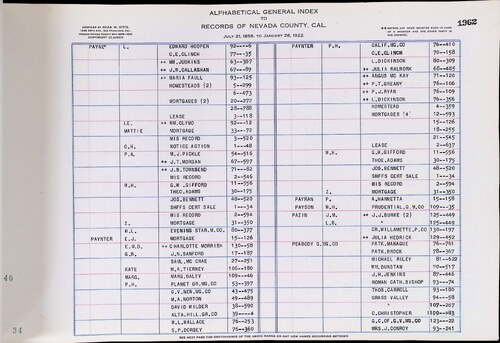 ALPHABETICAL GENERAL INDEX
TO
RECORDS OF NEVADA COUNTY, CAL.
JULY 21, 1856, TO JANUARY 26, 1922
COPYRIGHT CLAIMED
1962
PAYNE L. EDWARD HOOPER 92 6
C.E. CLINCH 77 35
++ WM. JUDKINS 63--387
++ J.M. GALLAGHAN 67--89
++ MARIA FAULL 93--125
HOMESTEADS (2) 5--299
6--473
MORTGAGES (2) 20--272
28--788
LEASE 3--118
LE. ++ WM. CLYMO 92--12
MATTIE MORTGAGE 33--72
MIS RECORD 3--520
O.H. NOTICE ACTION 1--48
P.A. M.J. PICKLE 54--516
++ J.T. MORGAN 67--597
++ J.B. TOWNSEND 71--82
MIS RECORD 2--546
W.H. G.W. GIFFORD 11--556
THEO. ADAMS 30--175
JOS. BENNETT 48--520
SHFFS CERT SALE 1--34
MIS RECORD 2--594
I. MORTGAGE 31--350
W.L. EVENING STAR. M.CO 80--377
PAYNTER E.J. MORTGAGE 15--126
E.W.D. ++ CHARLOTTE MORRISH 130--58
G.R. J.N. SANFORD 17--187
SAML. MC CRAE 27--251
KATE M.A. TIERNEY 105--180
MARG. MARG. DALEY 109--46
P.H. PLANET GR. MG.CO 53--397
G.V. NEW. MG.CO 43--475
M.A. NORTON 49--489
DAVID WILDER 38--590
ALTA. HILL. GR.CO 39 4
W.L. WALLACE 76--253
S.P. DORSEY 76--360
PAYNTER P.H. CALIF. MG.CO 76--410
C.E. CLINCH 70--158
L. DICKINSON 80--309
++ JULIA WALMORK 68--485
++ ARGUS MC KAY 71--126
++ P.T. GREANY 76--106
++ P.J. RYAN 76--109
++ L. DICKINSON 76--356
HOMESTEAD 4--359
MORTGAGES (4) 12--593
15--126
18--255
21--445
LEASE 2--637
W.H. G.W. GIFFORD 11--556
THEO. ADAMS 30--175
JOS. BENNETT 48--520
SHFFS CERT SALE 1--34
MIS RECORD 2--594
I. MORTGAGE 31--350
PAYRAN P. A. MANNETTA 15--158
PAYSON W.H. PRUDENTIAL G.M.CO 109--35
PAZIN J.M. ++ J.J. BURKE (2) 125--449
L.R. " 125--449
GR. WILLAMETTE. P.CO 130--197
++ JULIA HEDRICH 129--452
PEABODY G. MG.CO PATK. MANOGUE 76--761
PATK. BROCK 78--367
MICHAEL RILEY 81--622
WM. DUNSTAN 90--517
J.H. JENKINS 87--446
ROMAN CATH. BISHOP 93--74
THOS. CARROLL 93--180
GRASS VALLEY 94--58
" 107--207
C. CHRISTOPHER 109--483
G.C. OF G.V. MG.CO 123--22
MRS. J. CONROY 93--241
SEE NEXT PAGE FOR CONTINUANCE OF THE ABOVE NAMES OR ANY NEW NAMES OCCURRING BETWEEN
40
34